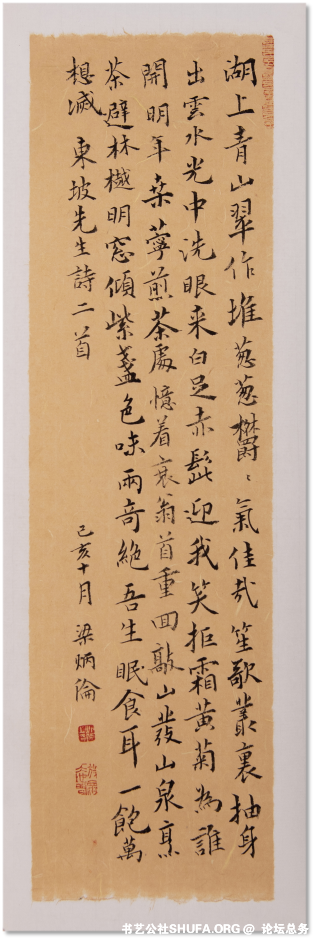 湖上青山翠作堆葱葱欝〻氣佳哉笙歌叢裏抽身
出雲水光中洗眼来白足赤髭迎我笑拒霜黄菊為誰
開明年桒薴煎茶處憶着衰翁首重回敲山發山泉烹
茶避林樾明窓傾紫盞色味兩奇絶吾生眠食耳一飽萬
想滅 東坡先生詩二首
己亥十月 梁炳倫
书艺公社SHUFA.ORG @ 论坛总务